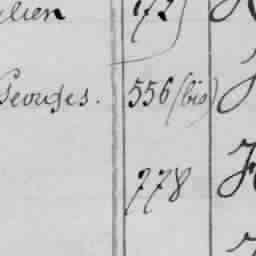 lien 172)
Georges. 556 (bis)
778